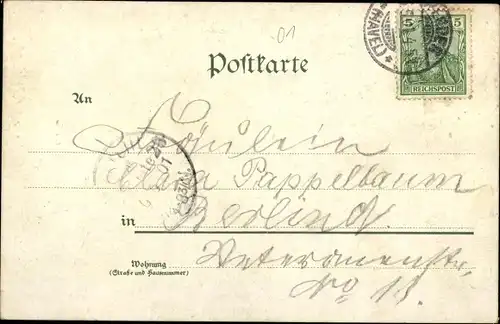 01
5 5
REICHSPOST
(HAVEL)
Postkarte
An
Fräulein
Clara Pappelbaum
in Berlin
Wohnung
(Straße und Hausnummer)
Veteranenstr.
No 18.